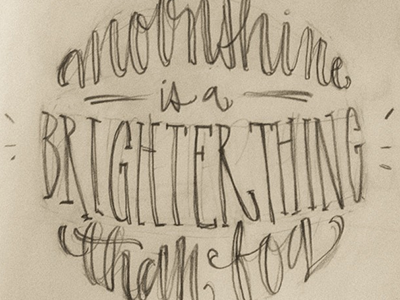 moonshine
is a
BRIGHTER THING
than fog